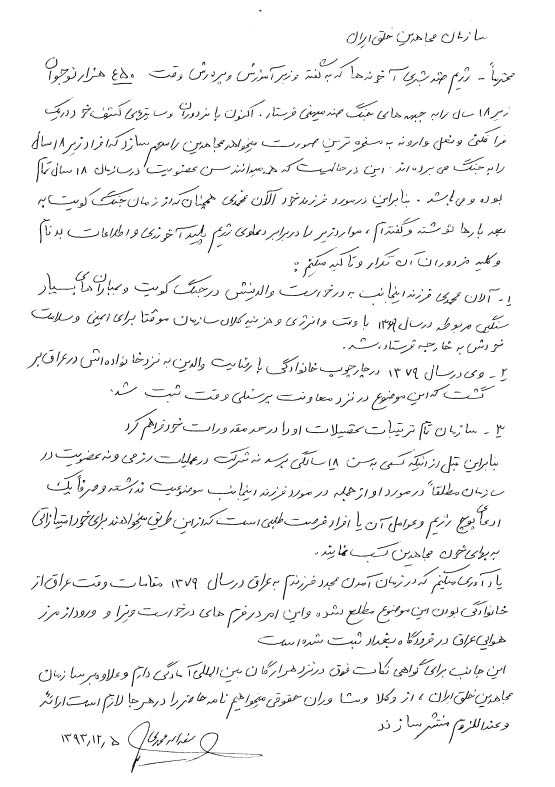 سازمان مجاهدین خلق ایران
محترماً - رژیم ضدبشری آخوندها که به گفته وزیر آموزش و پرورش وقت ۴۵۰ هزار نوجوان
زیر ۱۸ سال را به جبهه های جنگ ضدمیهنی فرستاد. اکنون با مزدوران وسابقه‌ی کثیف خود دریک
فرافکنی ونعل وارونه به مسخره ترین صورت میخواهد مجاهدین رامتهم سازد که افراد زیر ۱۸ سال
را به جنگ می برده اند. این در حالیست که همه میدانند سن عضویت درسازمان ۱۸ سال تمام
بوده و می باشد. بنابراین درمورد فرزند خود آلان محمدی همچنان که از زمان جنگ کویت به
بعد بارها نوشته و گفته ام، موارد زیر را در برابر دعاوی رژیم پلید آخوندی و اطلاعات بدنام
وکلیه مزدوران آن تکرار و تأکید میکنم:
۱- آلان محمدی فرزند اینجانب به درخواست والدینش در جنگ کویت و بمباران های بسیار
سنگین مربوطه درسال ۱۳۶۹ با وقت وانرژی و هزینه کلان سازمان موقتا برای ایمنی وسلامت
خودش به خارجه فرستاده شد.
۲- وی درسال ۱۳۷۹ درچارچوب خانوادگی با رضایت والدین به نزد خانواده اش در عراق بر
گشت که این موضوع در نزد معاونت پرسنلی وقت ثبت شد.
۳- سازمان تمام ترتیبات تحصیلات او را درحد مقدورات خود فراهم کرد
بنابراین قبل از آنکه کسی به سن ۱۸ سالگی برسد نه شرکت در عملیات رزمی و نه عضویت در
سازمان مطلقاً در مورد او از جمله در مورد فرزند اینجانب موضوعیت نداشته وصرفاً یک
ادعای پوچ رژیم وعوامل آن یا افراد فرصت طلبی است که ازاین طریق میخواهند برای خود امتیازاتی
به بهای خون مجاهدین کسب نمایند.
یادآوری میکنم که در زمان آمدن مجدد فرزندم به عراق درسال ۱۳۷۹ مقامات وقت عراق از
خانوادگی بودن این موضوع مطلع شده واین امر در فرم های درخواست ویزا و ورود از مرز
هوایی عراق در فرودگاه بغداد ثبت شده است
این جانب برای گواهی نکات فوق در نزد هر ارگان بین المللی آمادگی دارم و علاوه بر سازمان
مجاهدین خلق ایران، از وکلا ومشاوران حقوقی میخواهم نامه حاضر را در هر جا لازم است ارائه
و عنداللزوم منتشر سازند
محمدی ۱۳۹۳,۱۲,۵